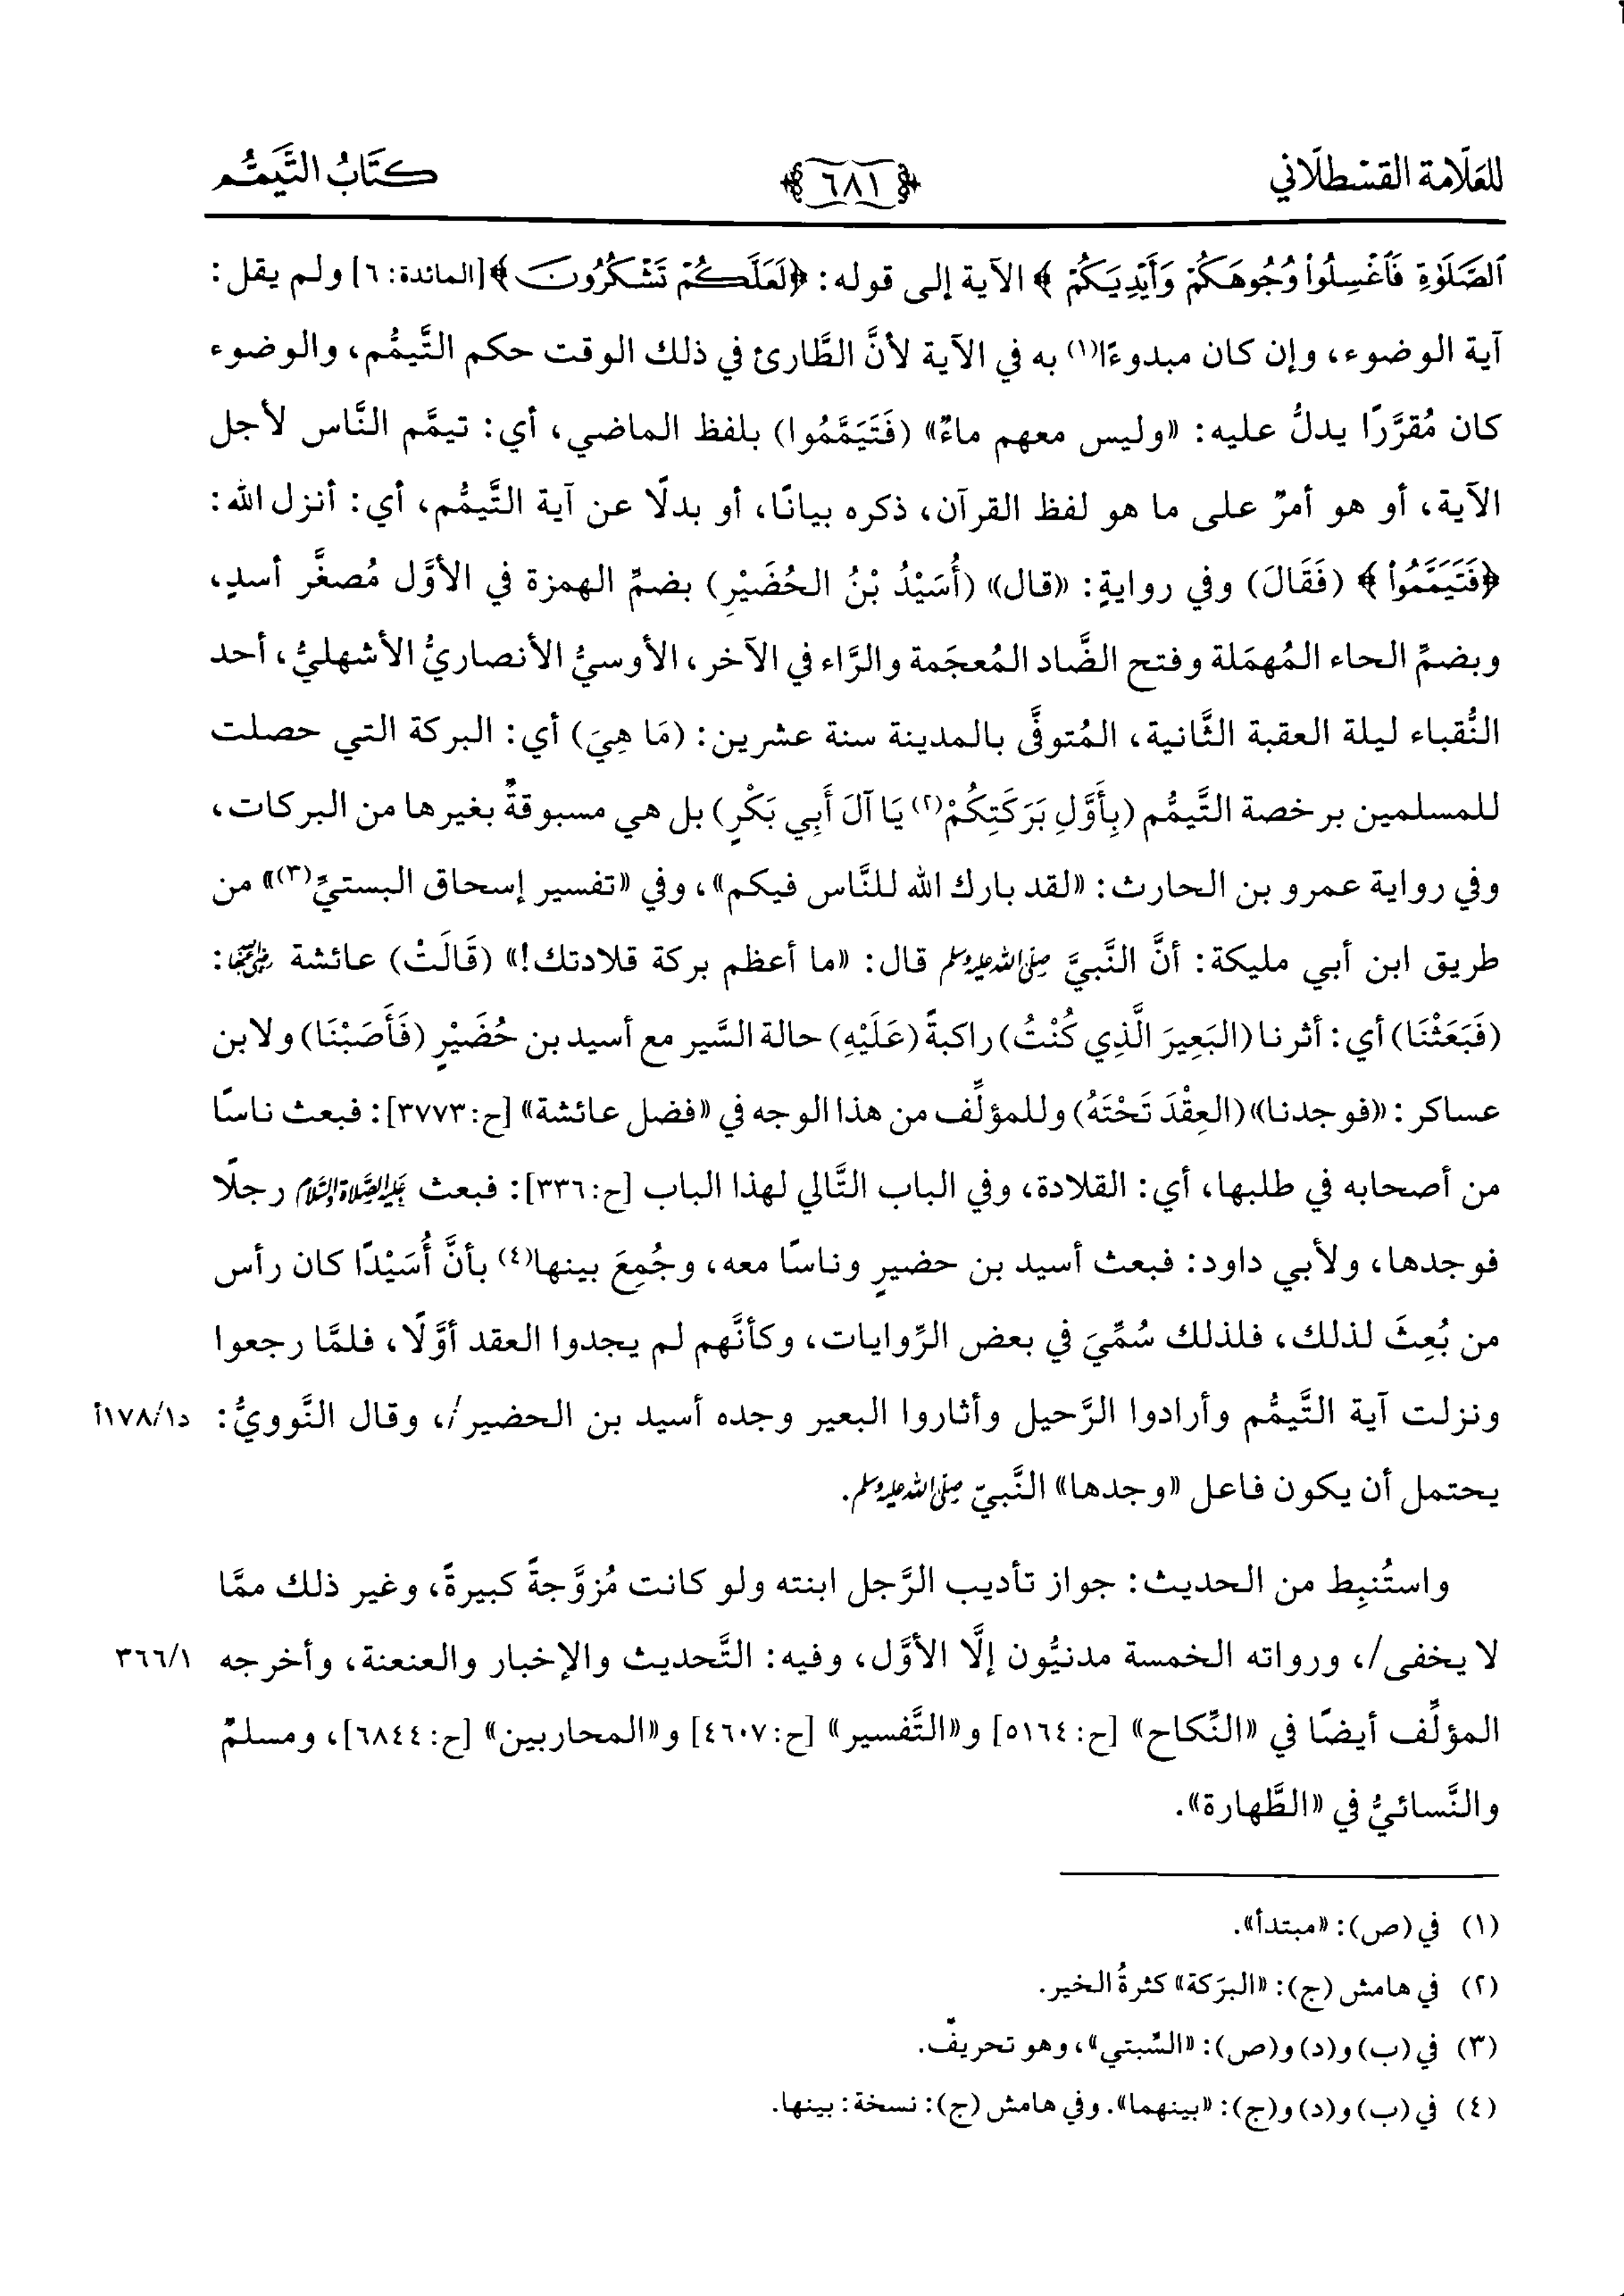 للعلّامة القسطلّاني
٦٨١
كتَابُ التَّيَمُّم
ٱلصَّلَوٰةِ فَٱغْسِلُوا۟ وُجُوهَكُمْ وَأَيْدِيَكُمْ ﴾ الآية إلى قوله: ﴿لَعَلَّكُمْ تَشْكُرُونَ﴾ [المائدة: ٦] ولم يقل:
آية الوضوء، وإن كان مبدوءًا(١) به في الآية لأنَّ الطَّارئ في ذلك الوقت حكم التَّيمُّم، والوضوء
كان مُقرَّرًا يدلُّ عليه: «وليس معهم ماءٌ» (فَتَيَمَّمُوا) بلفظ الماضي، أي: تيمَّم النَّاس لأجل
الآية، أو هو أمرٌ على ما هو لفظ القرآن، ذكره بيانًا، أو بدلًا عن آية التَّيمُّم، أي: أنزل الله:
﴿فَتَيَمَّمُوا۟ ﴾ (فَقَالَ) وفي روايةٍ: «قال» (أُسَيْدُ بْنُ الحُضَيْرِ) بضمِّ الهمزة في الأوَّل مُصغَّر أسدٍ،
وبضمِّ الحاء المُهمَلة وفتح الضَّاد المُعجَمة والرَّاء في الآخر، الأوسيُّ الأنصاريُّ الأشهليُّ، أحد
النُّقباء ليلة العقبة الثَّانية، المُتوفَّى بالمدينة سنة عشرين: (مَا هِيَ) أي: البركة التي حصلت
للمسلمين برخصة التَّيمُّم (بِأَوَّلِ بَرَكَتِكُمْ(٢) يَا آلَ أَبِي بَكْرٍ) بل هي مسبوقةٌ بغيرها من البركات،
وفي رواية عمرو بن الحارث: «لقد بارك الله للنَّاس فيكم»، وفي «تفسير إسحاق البستيِّ(٣)» من
طريق ابن أبي مليكة: أنَّ النَّبيَّ صلى الله عليه وسلم قال: «ما أعظم بركة قلادتك!» (قَالَتْ) عائشة رضي الله عنها:
(فَبَعَثْنَا) أي: أثرنا (البَعِيرَ الَّذِي كُنْتُ) راكبةً (عَلَيْهِ) حالة السَّير مع أسيد بن حُضَيْرٍ (فَأَصَبْنَا) ولابن
عساكر: «فوجدنا» (العِقْدَ تَحْتَهُ) وللمؤلِّف من هذا الوجه في «فضل عائشة» [ح: ٣٧٧٣]: فبعث ناسًا
من أصحابه في طلبها، أي: القلادة، وفي الباب التَّالي لهذا الباب [ح: ٣٣٦]: فبعث عليه الصلاة والسلام رجلًا
فوجدها، ولأبي داود: فبعث أسيد بن حضيرٍ وناسًا معه، وجُمِعَ بينها(٤) بأنَّ أُسَيْدًا كان رأس
من بُعِثَ لذلك، فلذلك سُمِّيَ في بعض الرِّوايات، وكأنَّهم لم يجدوا العقد أوَّلًا، فلمَّا رجعوا
ونزلت آية التَّيمُّم وأرادوا الرَّحيل وأثاروا البعير وجده أسيد بن الحضير/، وقال النَّوويُّ: د١/١٧٨أ
يحتمل أن يكون فاعل «وجدها» النَّبيّ صلى الله عليه وسلم.
واستُنبِط من الحديث: جواز تأديب الرَّجل ابنته ولو كانت مُزوَّجةً كبيرةً، وغير ذلك ممَّا
لا يخفى/، ورواته الخمسة مدنيُّون إلَّا الأوَّل، وفيه: التَّحديث والإخبار والعنعنة، وأخرجه ٣٦٦/١
المؤلِّف أيضًا في «النِّكاح» [ح: ٥١٦٤] و«التَّفسير» [ح: ٤٦٠٧] و«المحاربين» [ح: ٦٨٤٤]، ومسلمٌ
والنَّسائيُّ في «الطَّهارة».
(١) في (ص): «مبتدأ».
(٢) في هامش (ج): «البرَكة» كثرةُ الخير.
(٣) في (ب) و(د) و(ص): «السَّبتي»، وهو تحريفٌ.
(٤) في (ب) و(د) و(ج): «بينهما». وفي هامش (ج): نسخة: بينها.